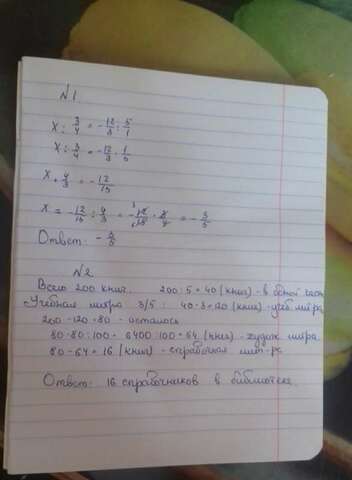 №1
X : 3/4 = -12/3 : 5/1
X : 3/4 = -12/3 · 1/5
X · 4/3 = -12/15
X = -12/15 : 4/3 = -12/15 · 3/4 = -3/5
Ответ: -3/5
№2
Всего 200 книг. 200:5=40 (книг) - в одной части
Учебная литра 3/5 : 40·3=120 (книг) - учеб литра
200-120=80 - осталось
80·80:100=6400:100=64 (книг) - худож литра
80-64=16 (книг) - справочная лит-ра
Ответ: 16 справочников в библиотеке.